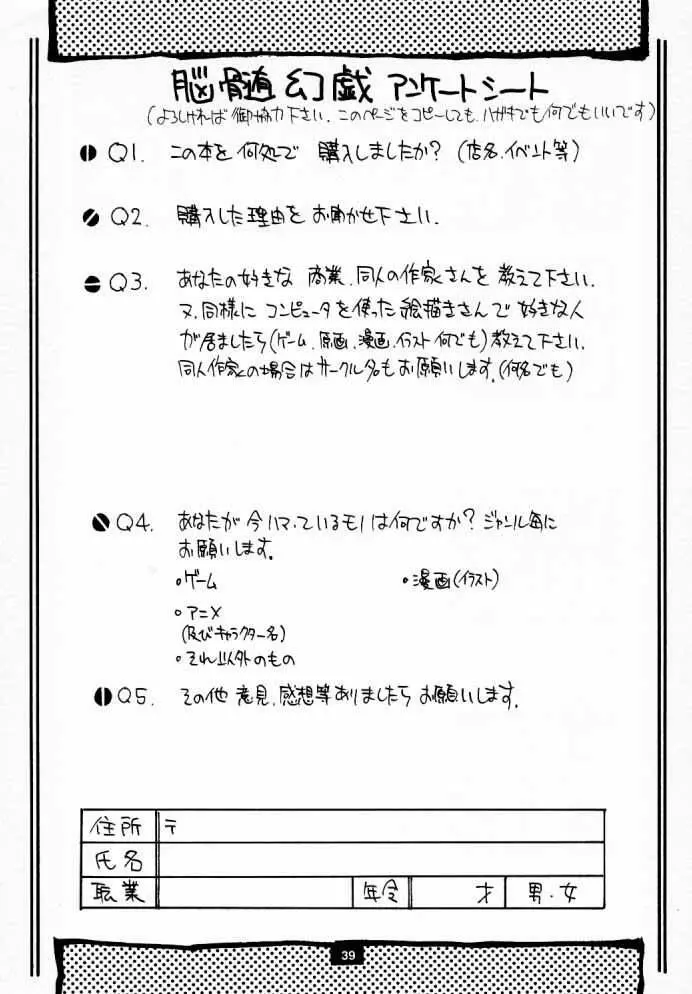 脳髄幻戯 アンケートシート
(よろしければ御協力下さい.このページをコピーしても、ハガキでも何でもいいです)
Q1. この本を何処で 購入しましたか?(店名.イベント等)
Q2. 購入した理由をお聞かせ下さい.
Q3. あなたの好きな 商業.同人の作家さんを 教えて下さい.
又.同様に コンピュータを使った絵描きさんで 好きな人
が居ましたら(ゲーム.原画.漫画.イラスト何でも)教えて下さい.
同人作家の場合はサークル名もお願いします.(何名でも)
Q4. あなたが今ハマっているモノは何ですか?ジャンル毎に
お願いします.
・ゲーム ・漫画(イラスト)
・アニメ
(及びキャラクター名)
・それ以外のもの
Q5. その他 意見.感想等ありましたらお願いします.
住所 〒
氏名
職業 年令 才 男・女
39